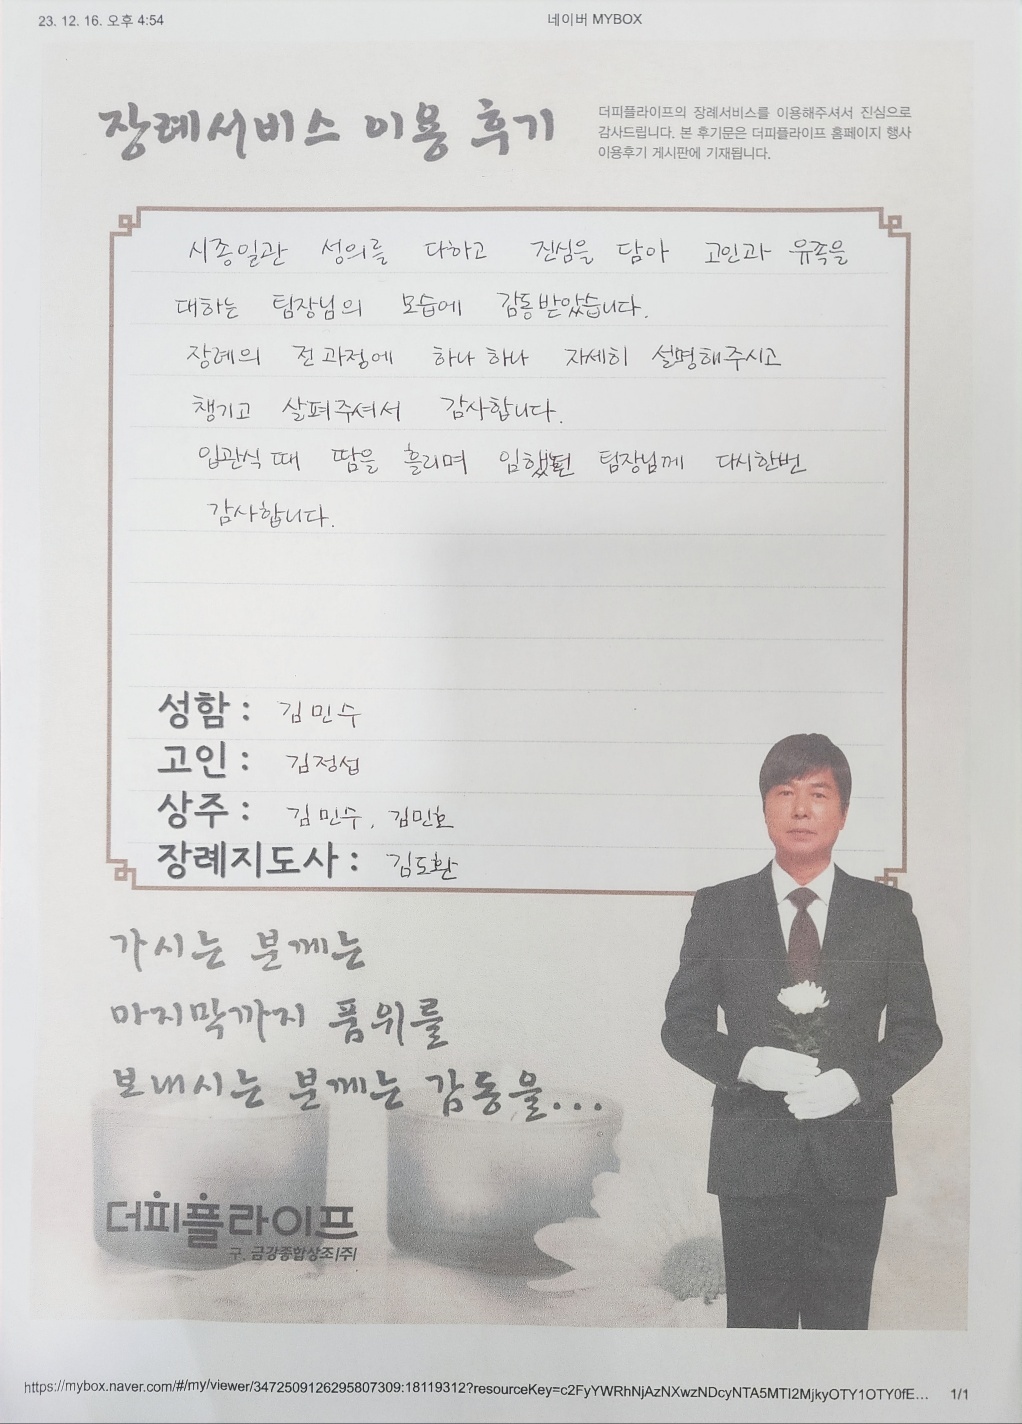 23. 12. 16. 오후 4:54
네이버 MYBOX
장례서비스 이용 후기
더피플라이프의 장례서비스를 이용해주셔서 진심으로
감사드립니다. 본 후기문은 더피플라이프 홈페이지 행사
이용후기 게시판에 기재됩니다.
시종일관 성의를 다하고 진심을 담아 고인과 유족을
대하는 팀장님의 모습에 감동받았습니다.
장례의 전과정에 하나하나 자세히 설명해주시고
챙기고 살펴주셔서 감사합니다.
입관식때 땀을 흘리며 팀장님께 다시한번
감사합니다.
성함 : 김민수
고인 : 김정섭
상주 : 김민수, 김민호
장례지도사 : 김도환
가시는 분께는
마지막까지 품위를
보내시는 분께는 감동을...
더피플라이프
구. 금강종합상조(주)
https://mybox.naver.com/#/my/viewer/3472509126295807309:18119312?resourceKey=c2FyYWRhNjAzNXwzNDcyNTA5MTI2MjkyOTY1OTY0fE... 1/1